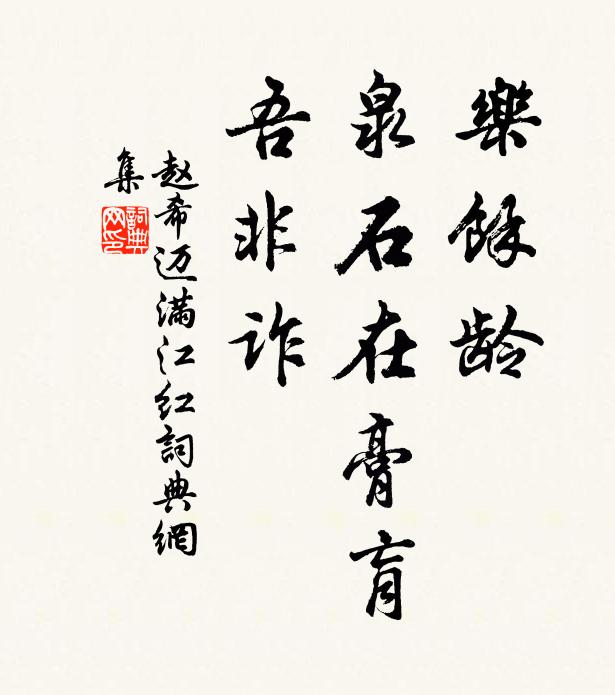 樂餘龄
泉石在膏肓
吾非诈
赵希迈满江红詞典網
集
詞典
网印